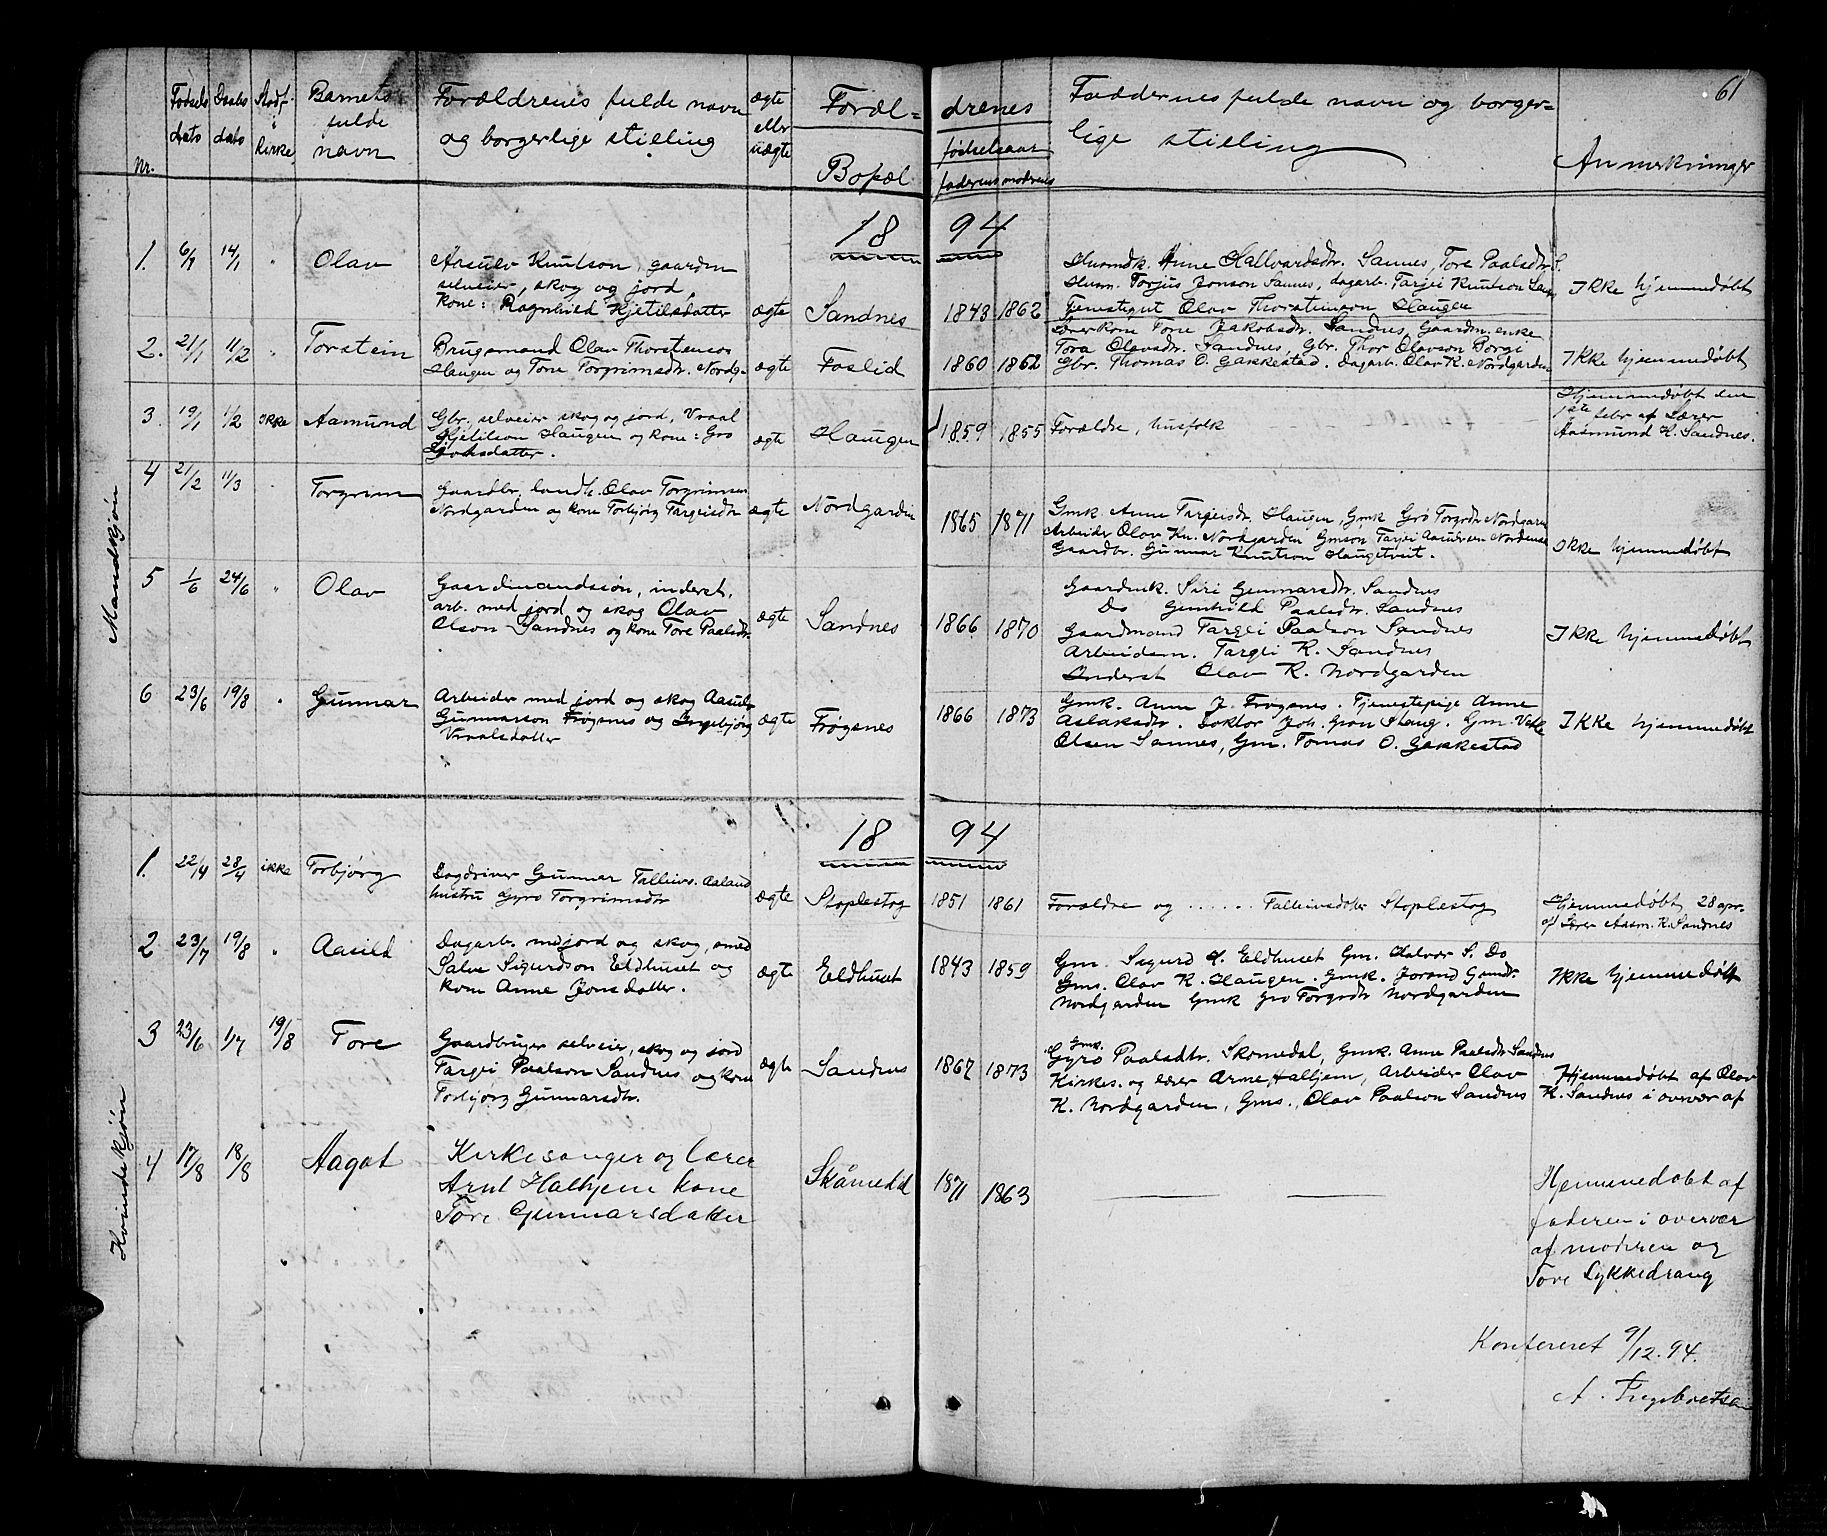 61
Nr.
Fødsels dato
Daabs dato
Stadf. i kirke
Barnets fulde navn
Forældrenes fulde navn og borgerlige stilling
ægte eller uægte
Foræl-
drenes
Bopæl
fødselsaar
faderens modrens
Faddernes fulde navn og borger-
lige stilling
Anmerkninger
Mandkjøn
18 94
1. 6/1 14/1 " Olav
Aasulv Knutson, gaardm
selveier, skog og jord,
kone: Ragnhild Kjetilsdatter
ægte Sandnes 1843 1862
Husmdk. Anne Hallvardsdtr. Sannes, Tore Paalsdtr S.
Husm. Torjus Jonson Sannes, dagarb. Targei Knutson
Tjenestegut Olav Thorsteinson Haugen
Ikke hjemmedøbt
2. 21/1 11/2 " Torstein
Brugsmand Olav Thorstenson
Haugen og Tone Torgrimsdtr. Nordg.
ægte Foslid 1860 1862
kone Tone Jakobsdtr. Sandnes, Gaardm. enke
Tora Olavsdr. Sandnes, Gbr. Thor Olavson Borgi
Gbr. Thomas O. Gakkestad. Dagarb. Olav K. Nordgarden
Ikke hjemmedøbt
3. 19/1 1/2 Ikke Aamund
Gbr, selveier skog og jord, Vraal
Kjetilson Haugen og kone: Gro
ægte Haugen 1859 1855
Forældre, husfolk
Hjemmedøbt den
1ste febr af Lærer
Aasmund K. Sandnes.
4 21/2 11/3 Torgrim
Gaardbr, landh. Olav Torgrimsen
Nordgarden og kone Torbjørg Targeisdtr
ægte Nordgarden 1865 1871
Gmk Anne Targeisdr. Haugen, Gmk Gro Torgrdtr Nordgarden
Arbeider Olav Kn. Nordgarden Gmson Targei
Gaardbr. Gunnar Knutson Haugetveit.
Ikke hjemmedøbt
5 1/6 24/6 " Olav
Gaardmandssøn, inderst,
arb. med jord og skog Olav
Olson Sandnes og kone Tore Paalsdtr.
ægte Sandnes 1866 1870
Gaardmk. Siri Gunnarsdtr. Sandnes
Do Gunhild Paalsdtr. Sandnes
Gaardmand Targei Paalson Sandnes
Arbeidsm. Targei K. Sandnes
Inderst Olav K. Nordgarden
Ikke hjemmedøbt
6 23/6 19/8 " Gunnar
Arbeider med jord og skog Aasulv
Gunnarson Frøgsnes og Ingebjørg
Vraalsdatter
ægte Frøgsnes 1866 1873
Gmk. Anne J. Frøgsnes. Tjenestepige Anne
Aslaksdtr. Doktor Joh. Stang. Gm.
Olsen Sannes, Gm. Tomas O. Gakkestad
Ikke hjemmedøbt
Kvindekjøn
18 94
1. 22/4 28/4 ikke Torbjørg
Dagdriver Gunnar Talleivs. Aaland
hustru Gyro Torgrimsdtr
ægte Stoplestog 1851 1861
Forældre og ...... Talleivsdatter Stoplestog
Hjemmedøbt 28 apr.
af Lærer Aasm. K. Sandnes
2 23/7 19/8 " Aasild
Dagarb. m jord og skog, smed
Salve Sigurdson Eldhuset og
kone Anne Jonsdatter.
ægte Eldhuset 1843 1859
Gm. Sigurd Eldhuset Gm. S. Do
Gms. Olav K. Haugen. Gmk. Jorand
Nordgarden Gmk Gro Torgrdtr Nordgarden
Ikke hjemmedøbt
3 23/6 1/7 19/8 Tore
Gaardbruger selveier, skog og jord
Targei Paalson Sandnes og kone
Torbjørg Gunnarsdtr.
ægte Sandnes 1867 1873
Gmk. Gyro Paalsdtr. Skomedal, Gmk. Anne Paalsdtr Sandnes
Kirkes. og lærer Arne Halhjem, Arbeider Olav
K. Nordgarden, Gms., Olav Paalson Sandnes
Hjemmedøbt af Olav
K. Sandnes i overvær af
4 17/8 18/8 Aagot
Kirkesanger og lærer
Arnt Halhjem kone
Tore Gunnarsdatter
Skåmedal 1871 1863
Hjemmedøbt af
faderen i overvær
af moderen og
Tore Lykkedrang
Konfereret 9/12.94.
A.